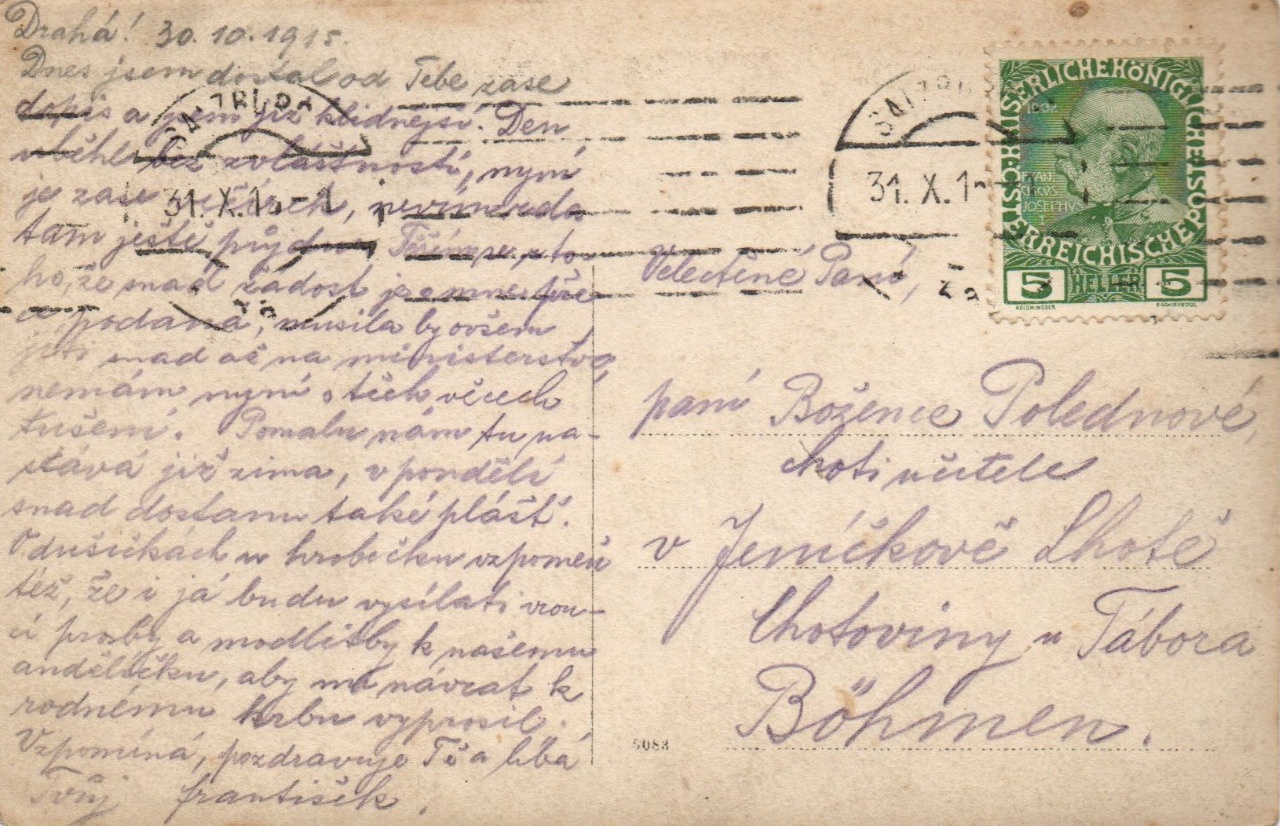 Drahá! 30.10.1915.
Dnes jsem dostal od Tebe zase
dopis a jsem již klidnější. Den
uběhl bez zvláštností, nyní
je zase večírek, nevím zda
tam ještě půjdu. Těším se z to-
ho, že snad žádost je o mne
podána, musila by ovšem
snad až na ministerstvo,
nemám nyní o těch věcech
tušení. Pomalu nám tu na-
stává již zima, v pondělí
snad dostanu také plášť.
O dušičkách u hrobečku vzpomeň
též, že i já budu vysílati vrou-
cí prosby a modlitby k našemu
andělíčku, aby mi návrat k
rodnému krbu vyprosil.
Vzpomíná, pozdravuje Tě a líbá
Tvůj František.
SALZBURG
31. X. 15-1
SALZBURG
31. X. 1
KAISERLICHE KÖNIGLICHE ÖSTERREICHISCHE POST
FRAN
CISCUS
JOSEPHUS
I
5 HELLER 5
Velectěné Paní,
paní Božence Polednové,
choti učitele
v Jeníčkově Lhotě
Chotoviny u Tábora
Böhmen.
5083